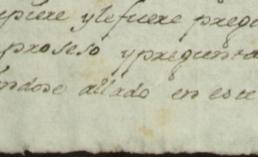 supiere y le fuere preg
proseso y pregunta
andose allado en este